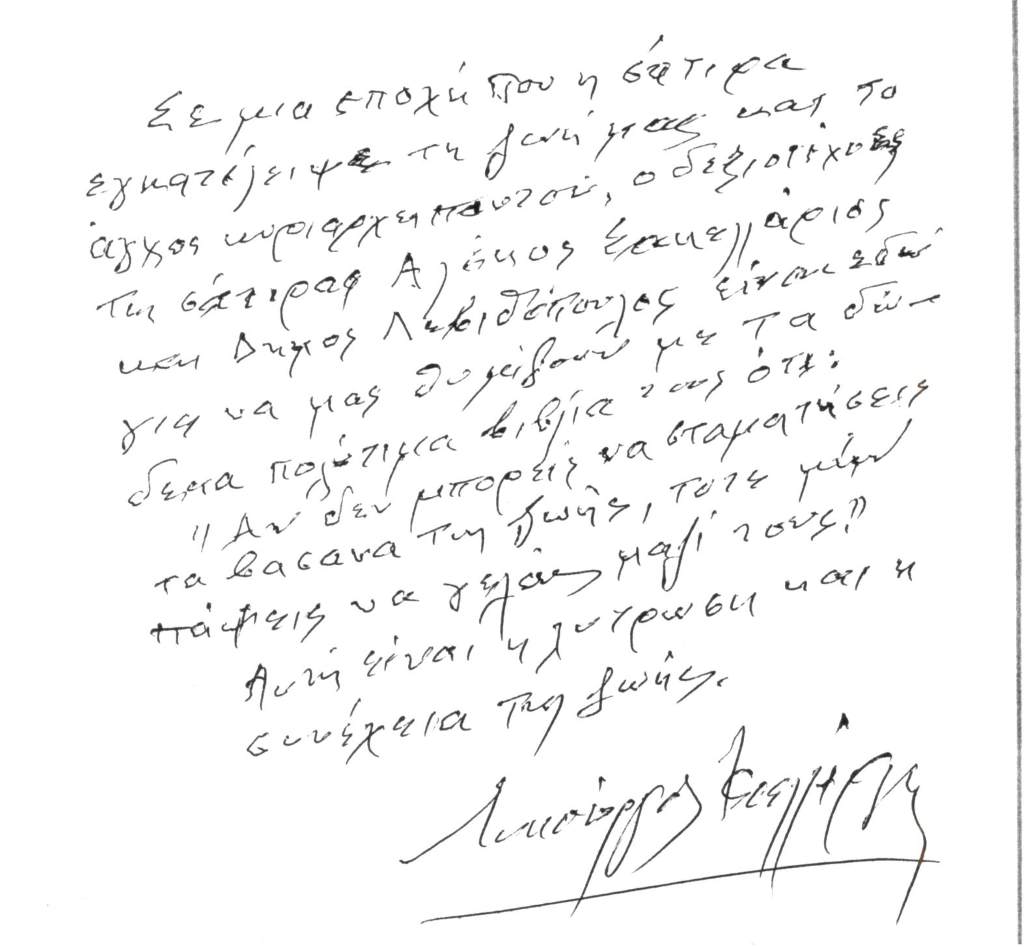 Σε μια εποχή που η σάτιρα
εγκατέλειψε τη ζωή μας και το
άγχος κυριαρχεί παντού, ο δεξιοτέχνες
της σάτιρας Αλέκος Σακελλάριος
και Δήμος Λεβιθόπουλος είναι εδώ
για να μας θυμίζουν με τα δώ-
δεκα πολύτιμα βιβλία τους ότι:
"Αν δεν μπορείς να σταματήσεις
τα βάσανα της ζωής, τότε μήν
πάψεις να γελάς μαζί τους"
Αυτή είναι η λύτρωση και η
συνέχεια της ζωής.
Λυκούργος Καλλέργης